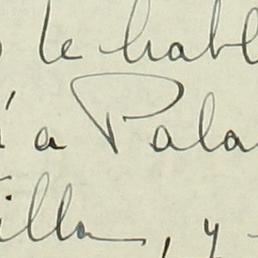 le habl
a Pala
illa, y